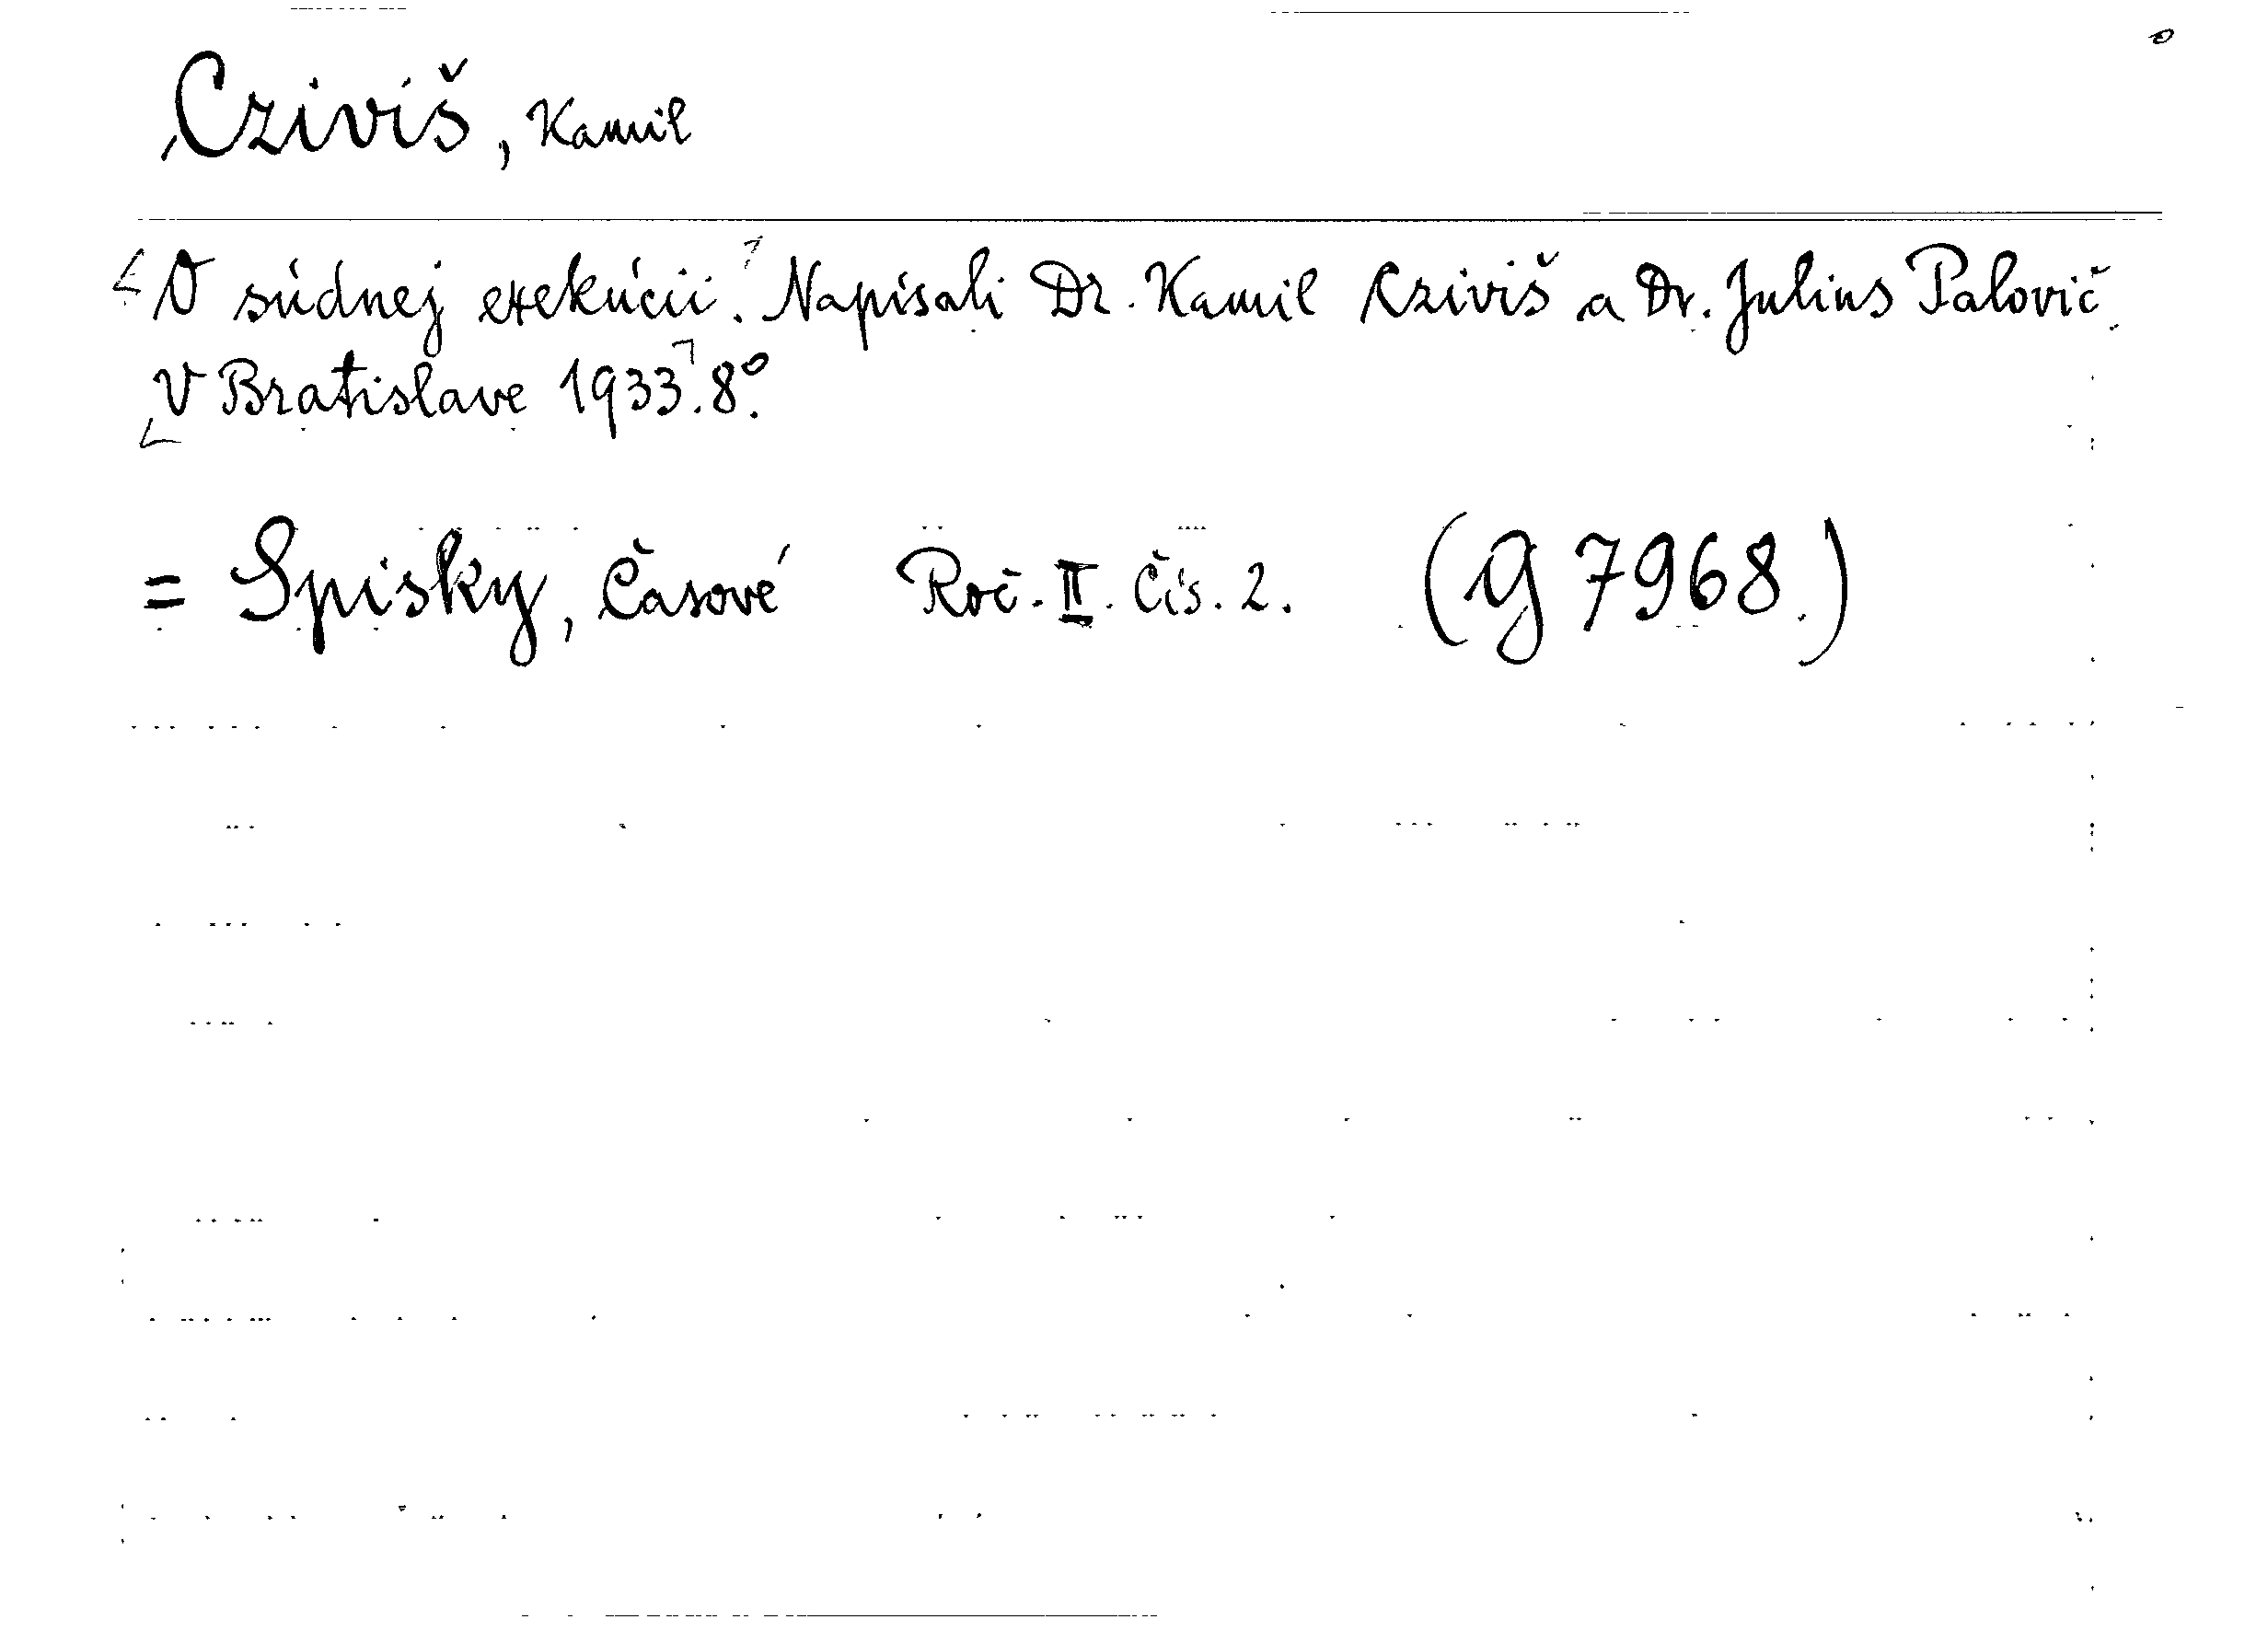 Cziviš, Kamil
O súdnej exekúcii. Napísali Dr. Kamil Cziviš a Dr. Julius Palovič.
V Bratislave 1933. 8°.
= Spisky, Časové Roč. II. Čís. 2. (G 7968.)